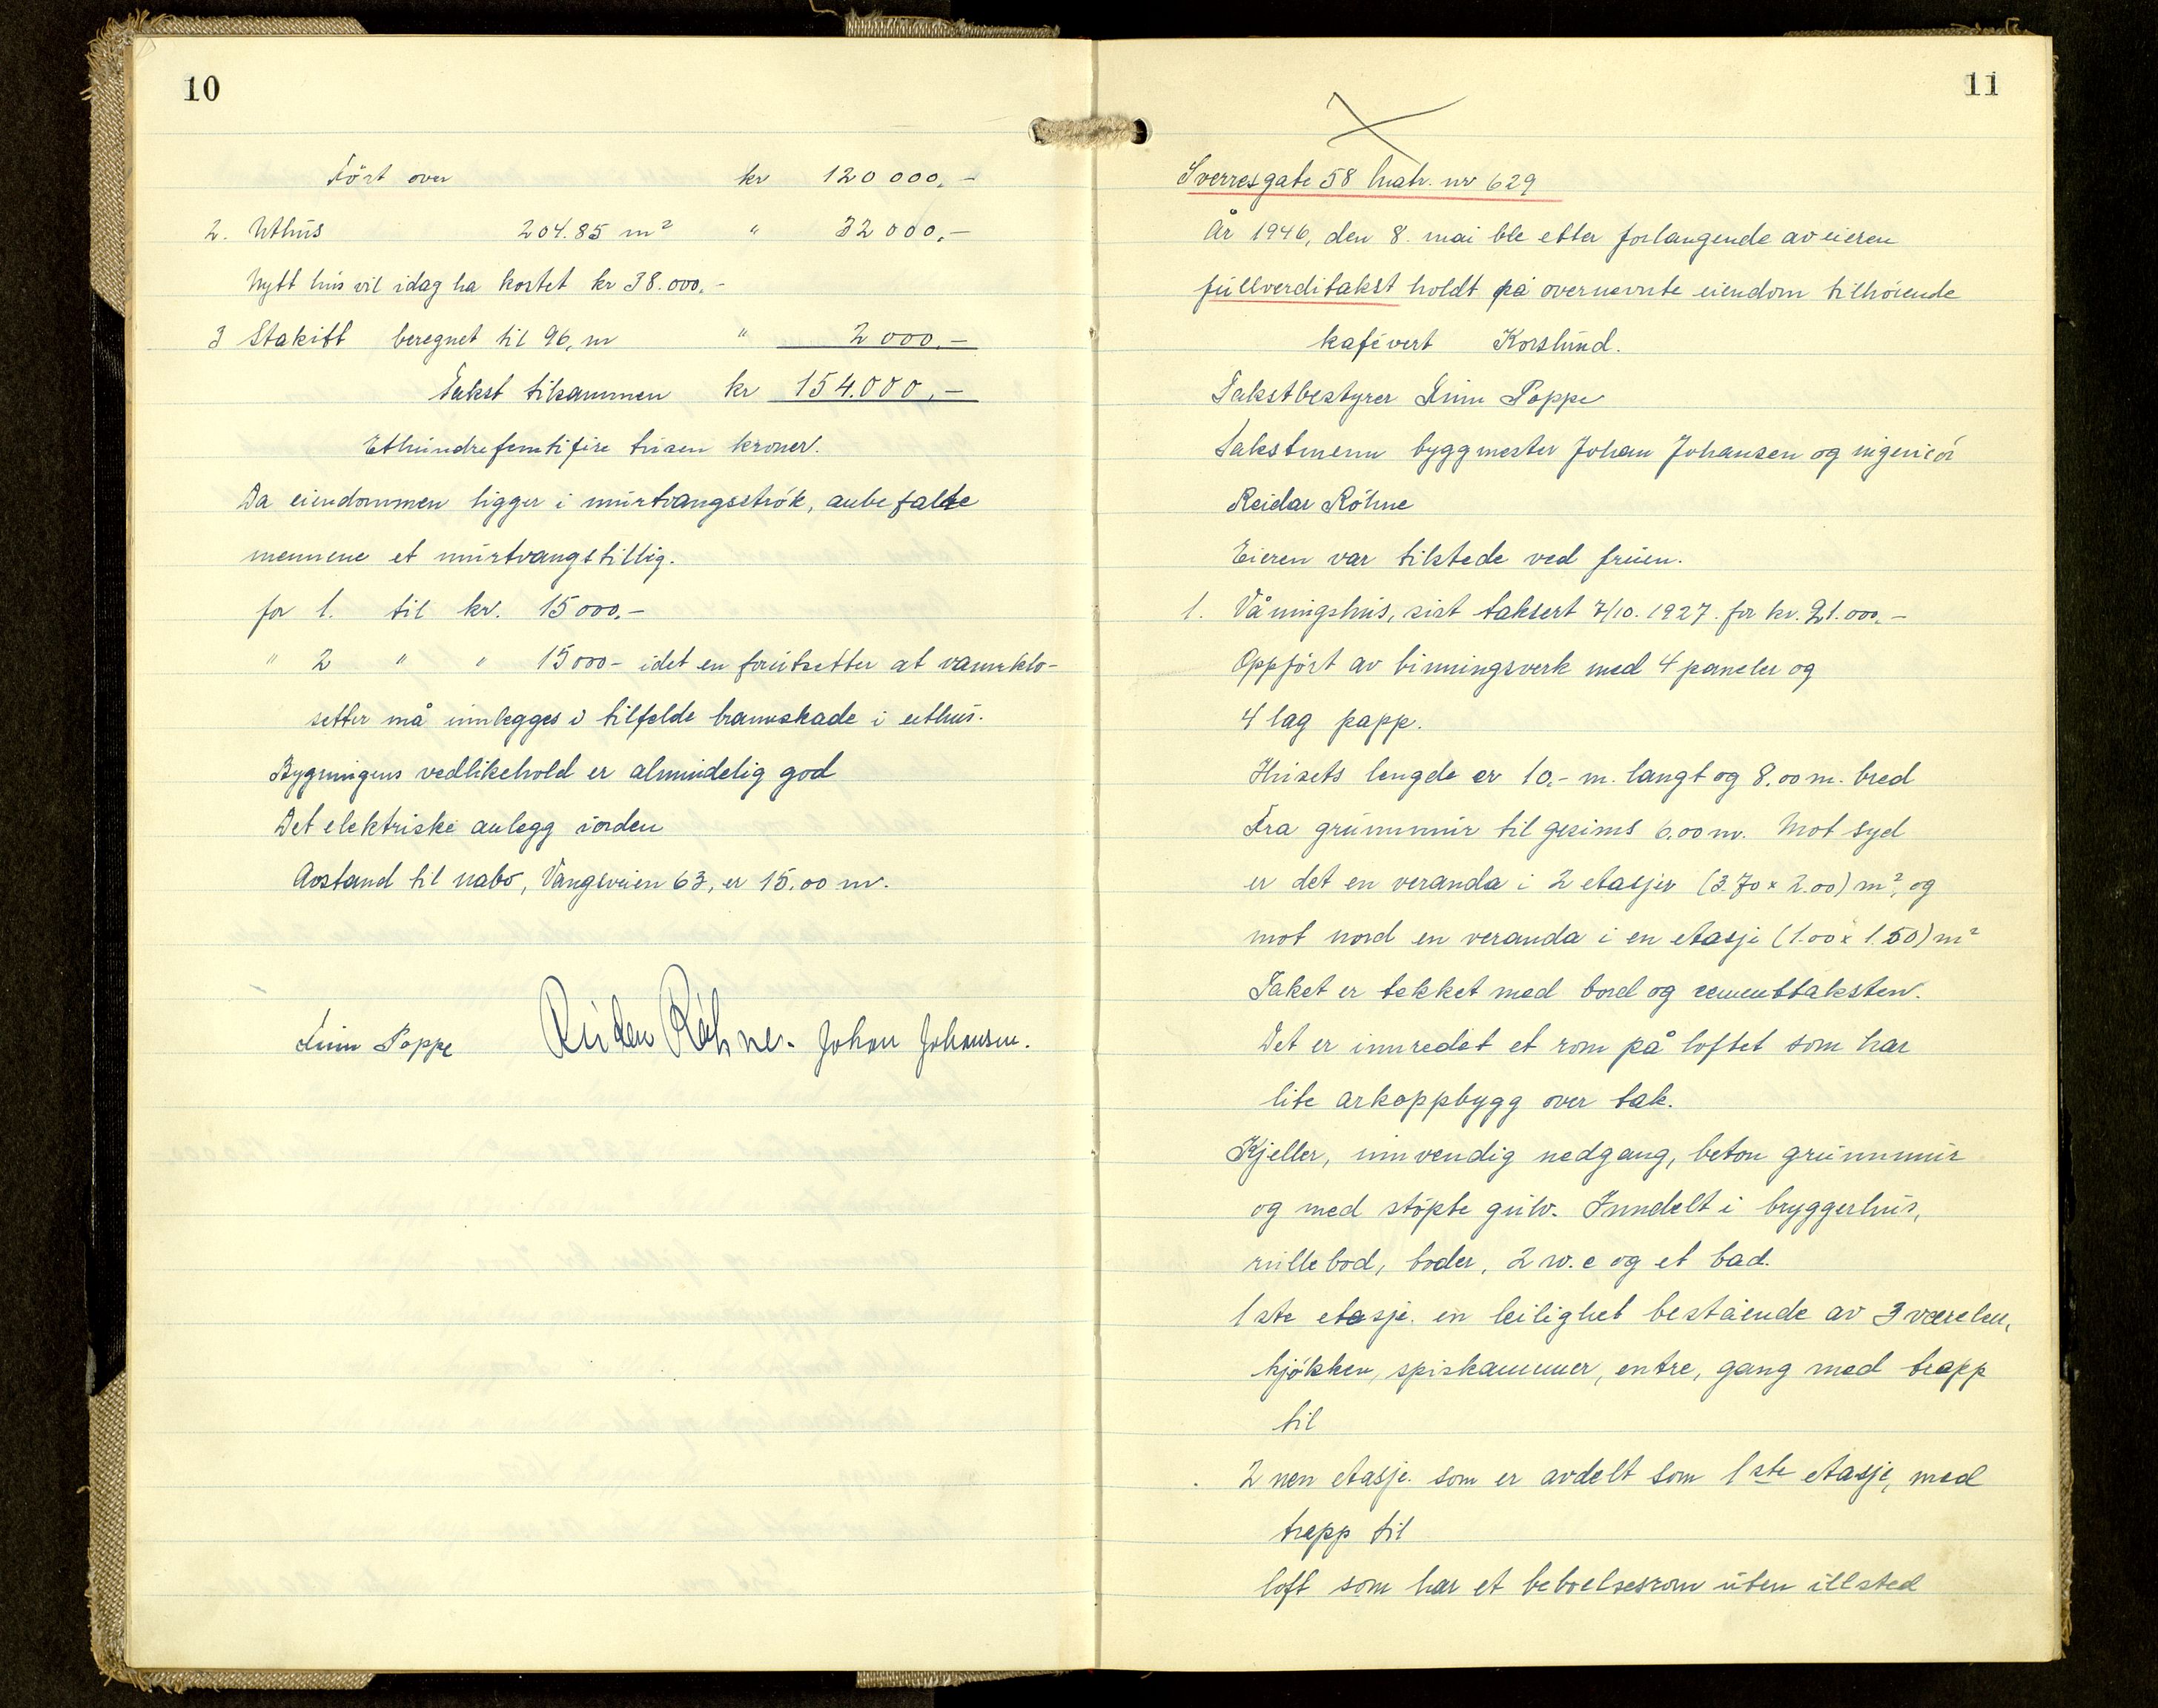 10
Ført over kr 120 000,-
2. Uthus 204.85 m² " 32 000,-
Nytt hus vil idag ha kostet kr 38.000,-
3 Stakitt beregnet til 96,m " 2 000,-
Takst tilsammen kr 154.000,-
Ethundrefemtifire tusen kroner.
Da eiendommen ligger i murtvangsstrøk, anbefalte
mennene et murtvangstillig.
for 1. til kr. 15 000.-
" 2 " " 15 000- idet en forutsetter at vannklo-
setter må innlegges i tilfelde brannskade i uthus.
Bygningens vedlikehold er almindelig god
Det elektriske anlegg iorden
Avstand til nabo, Vangsveien 63, er 15.00 m.
Linn Poppe Reidar Röhne. Johan Johansen.
11
Sverresgate 58 matr. nr 629
År 1946, den 8. mai ble etter forlangende av eieren
fullverditakst holdt på overnevnte eiendom tilhørende
kafévert Korslund.
Takstbestyrer Linn Poppe
Takstmenn byggmester Johan Johansen og ingeniør
Reidar Röhne
Eieren var tilstede ved fruen.
1. Våningshus, sist taksert 7/10. 1927. for kr. 21.000,-
Oppført av binningsverk med 4 paneler og
4 lag papp.
Husets lengde er 10,- m. langt og 8.00 m. bred
Fra grunnmur til gesims 6.00 m. Mot syd
er det en veranda i 2 etasjer (3.70 x 2.00) m², og
mot nord en veranda i en etasje (1.00 x 1.50) m²
Taket er tekket med bord og cementtaksten.
Det er innredet et rom på loftet som har
lite arkoppbygg over tak.
Kjeller, innvendig nedgang, beton grunnmur
og med støpte gulv. Inndelt i bryggerhus,
rullebod, boder, 2 w.c og et bad.
1 ste etasje. en leilighet bestående av 3 værelser,
kjøkken, spiskammer, entre, gang med trapp
til
2 nen etasje. som er avdelt som 1 ste etasje, med
trapp til
loft som har et beboelsesrom uten illsted